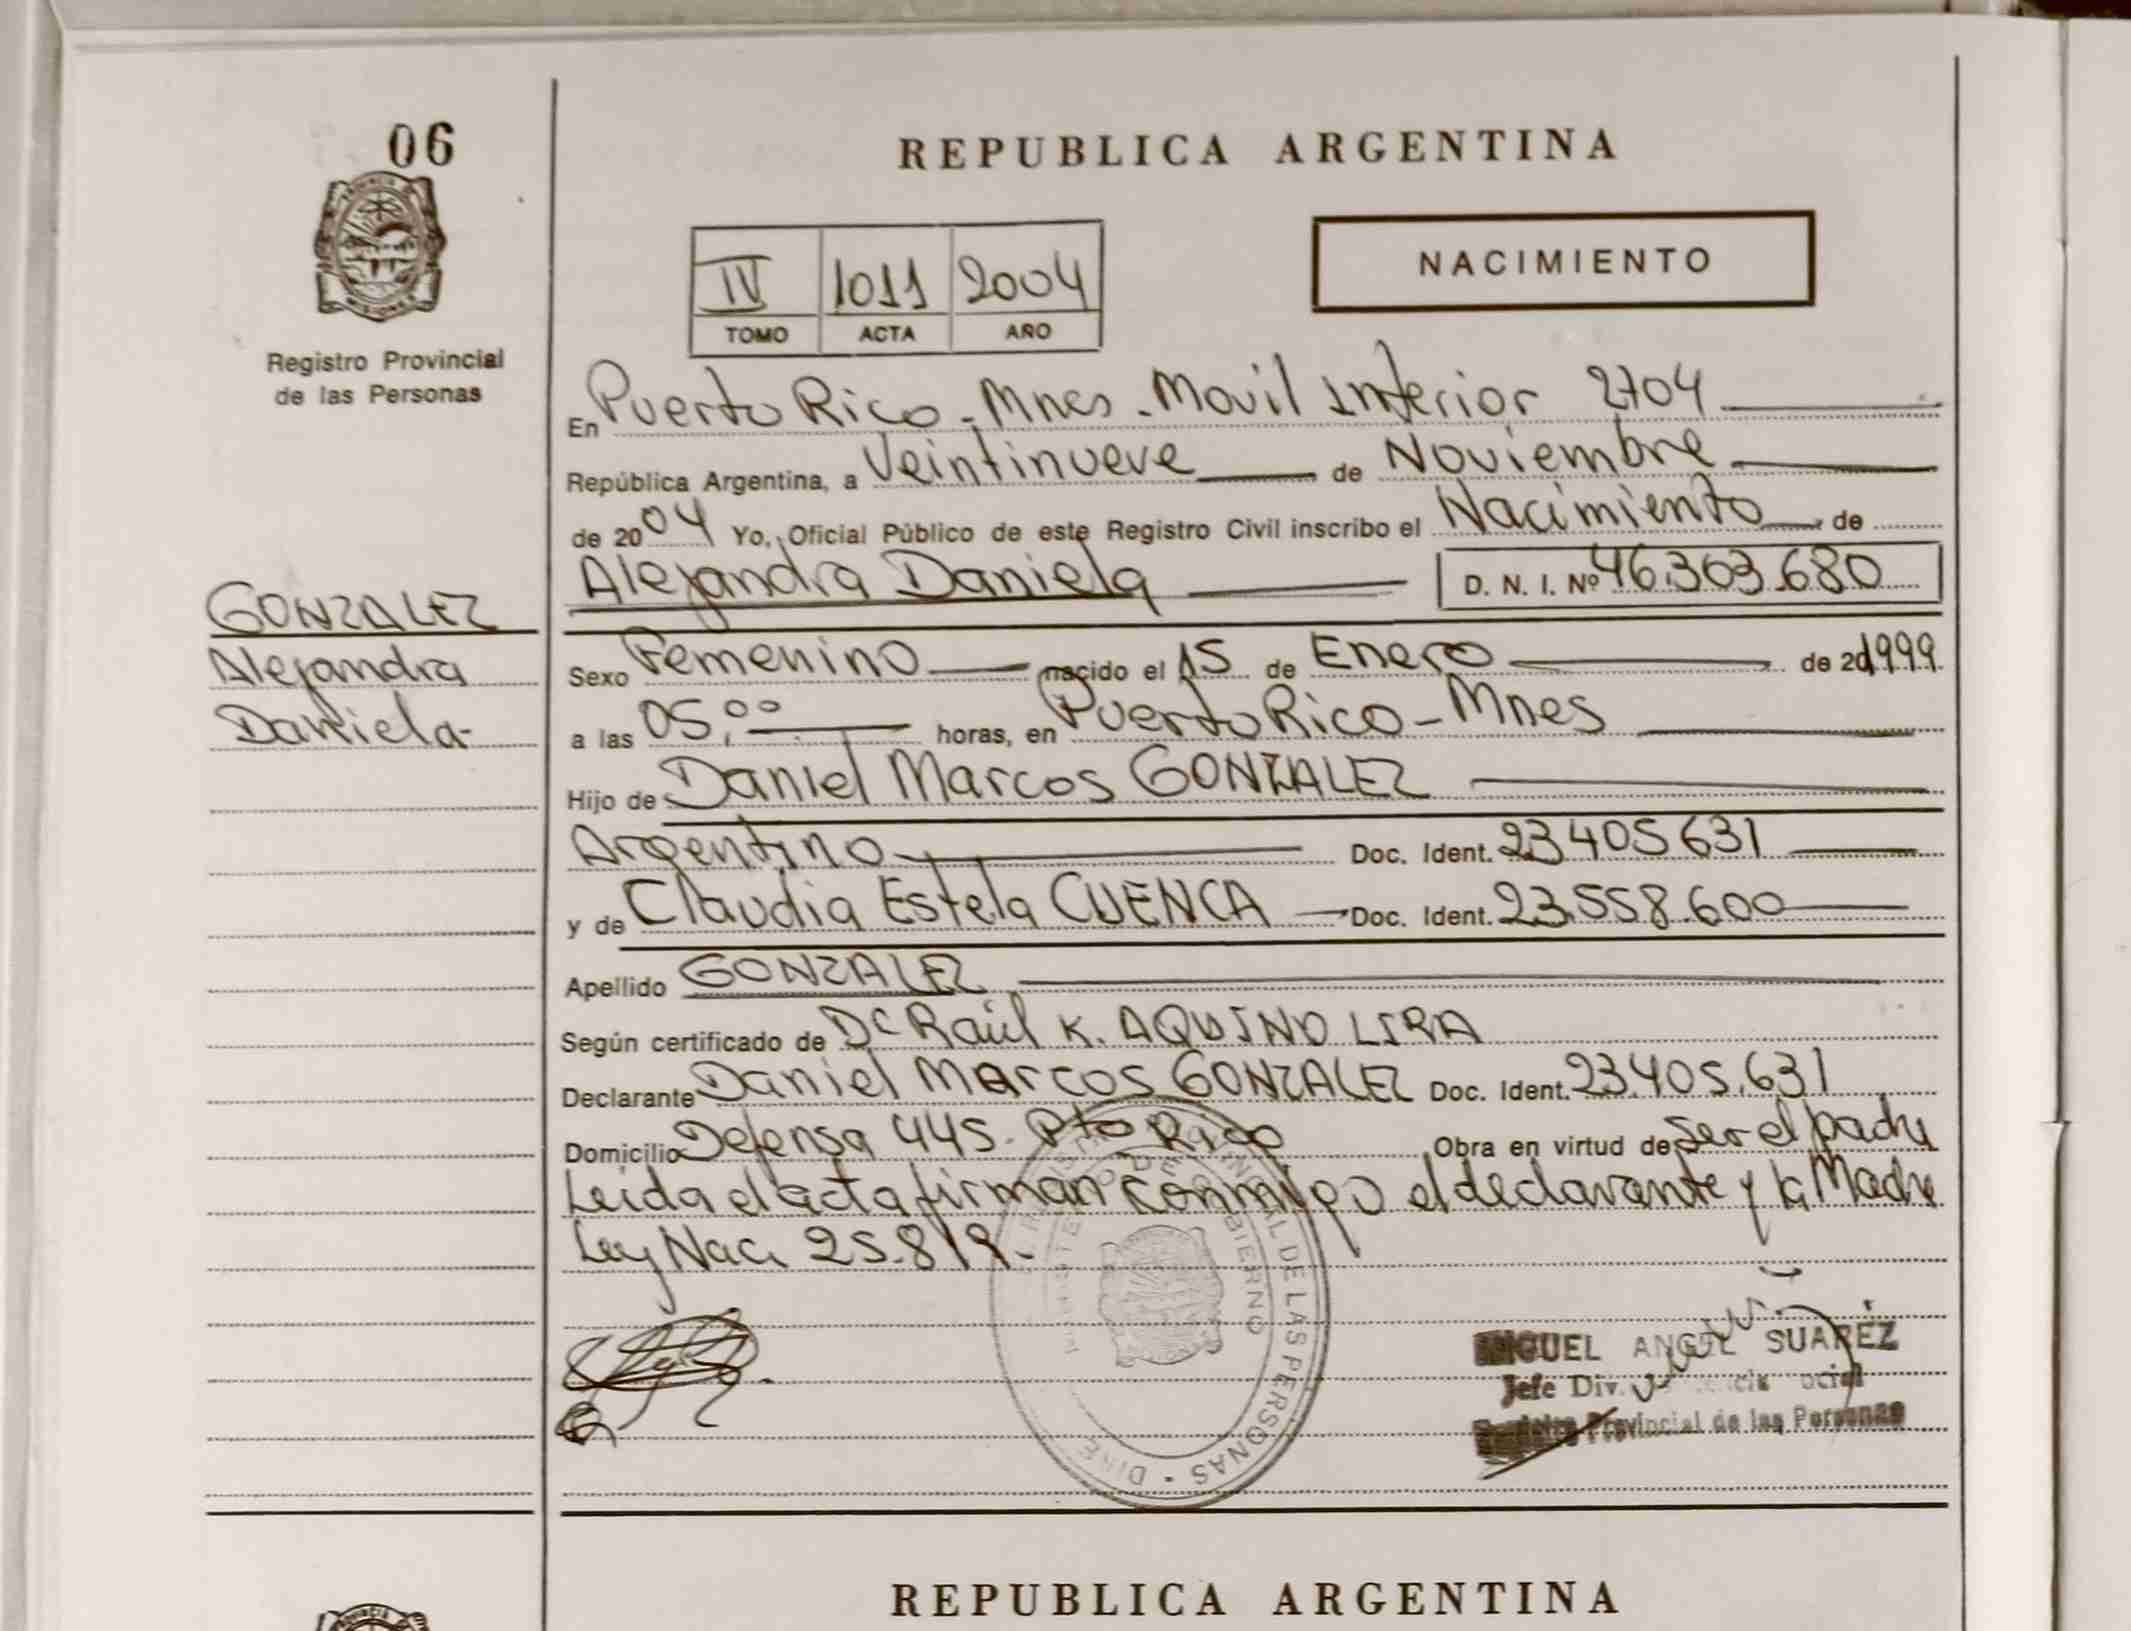 06
REPUBLICA ARGENTINA
NACIMIENTO
IV 1011 2004
TOMO ACTA AÑO
Registro Provincial
de las Personas
En Puerto Rico - Mnes - Movil Interior 2704
República Argentina, a Veintinueve de Noviembre
de 2004 Yo, Oficial Público de este Registro Civil inscribo el Nacimiento de
Alejandra Daniela D. N. I. Nº 46.303.680
GONZALEZ
Alejandra
Daniela-
Sexo Femenino nacido el 15 de Enero de 201999
a las 05,00 horas, en Puerto Rico - Mnes
Hijo de Daniel Marcos GONZALEZ
Argentino Doc. Ident. 23405631
y de Claudia Estela CUENCA Doc. Ident. 23.558.600
Apellido GONZALEZ
Según certificado de Dr Raúl K. AQUINO LIRA
Declarante Daniel Marcos GONZALEZ Doc. Ident. 23.405.631
Domicilio Defensa 445. Pto Rico Obra en virtud de ser el padre
Leida el acta firman conmigo el declarante y la Madre
Ley Nac. 25.819.-
MIGUEL ANGEL SUAREZ
Jefe Div.
Registro Provincial de las Personas
DE LAS PERSONAS
REPUBLICA ARGENTINA